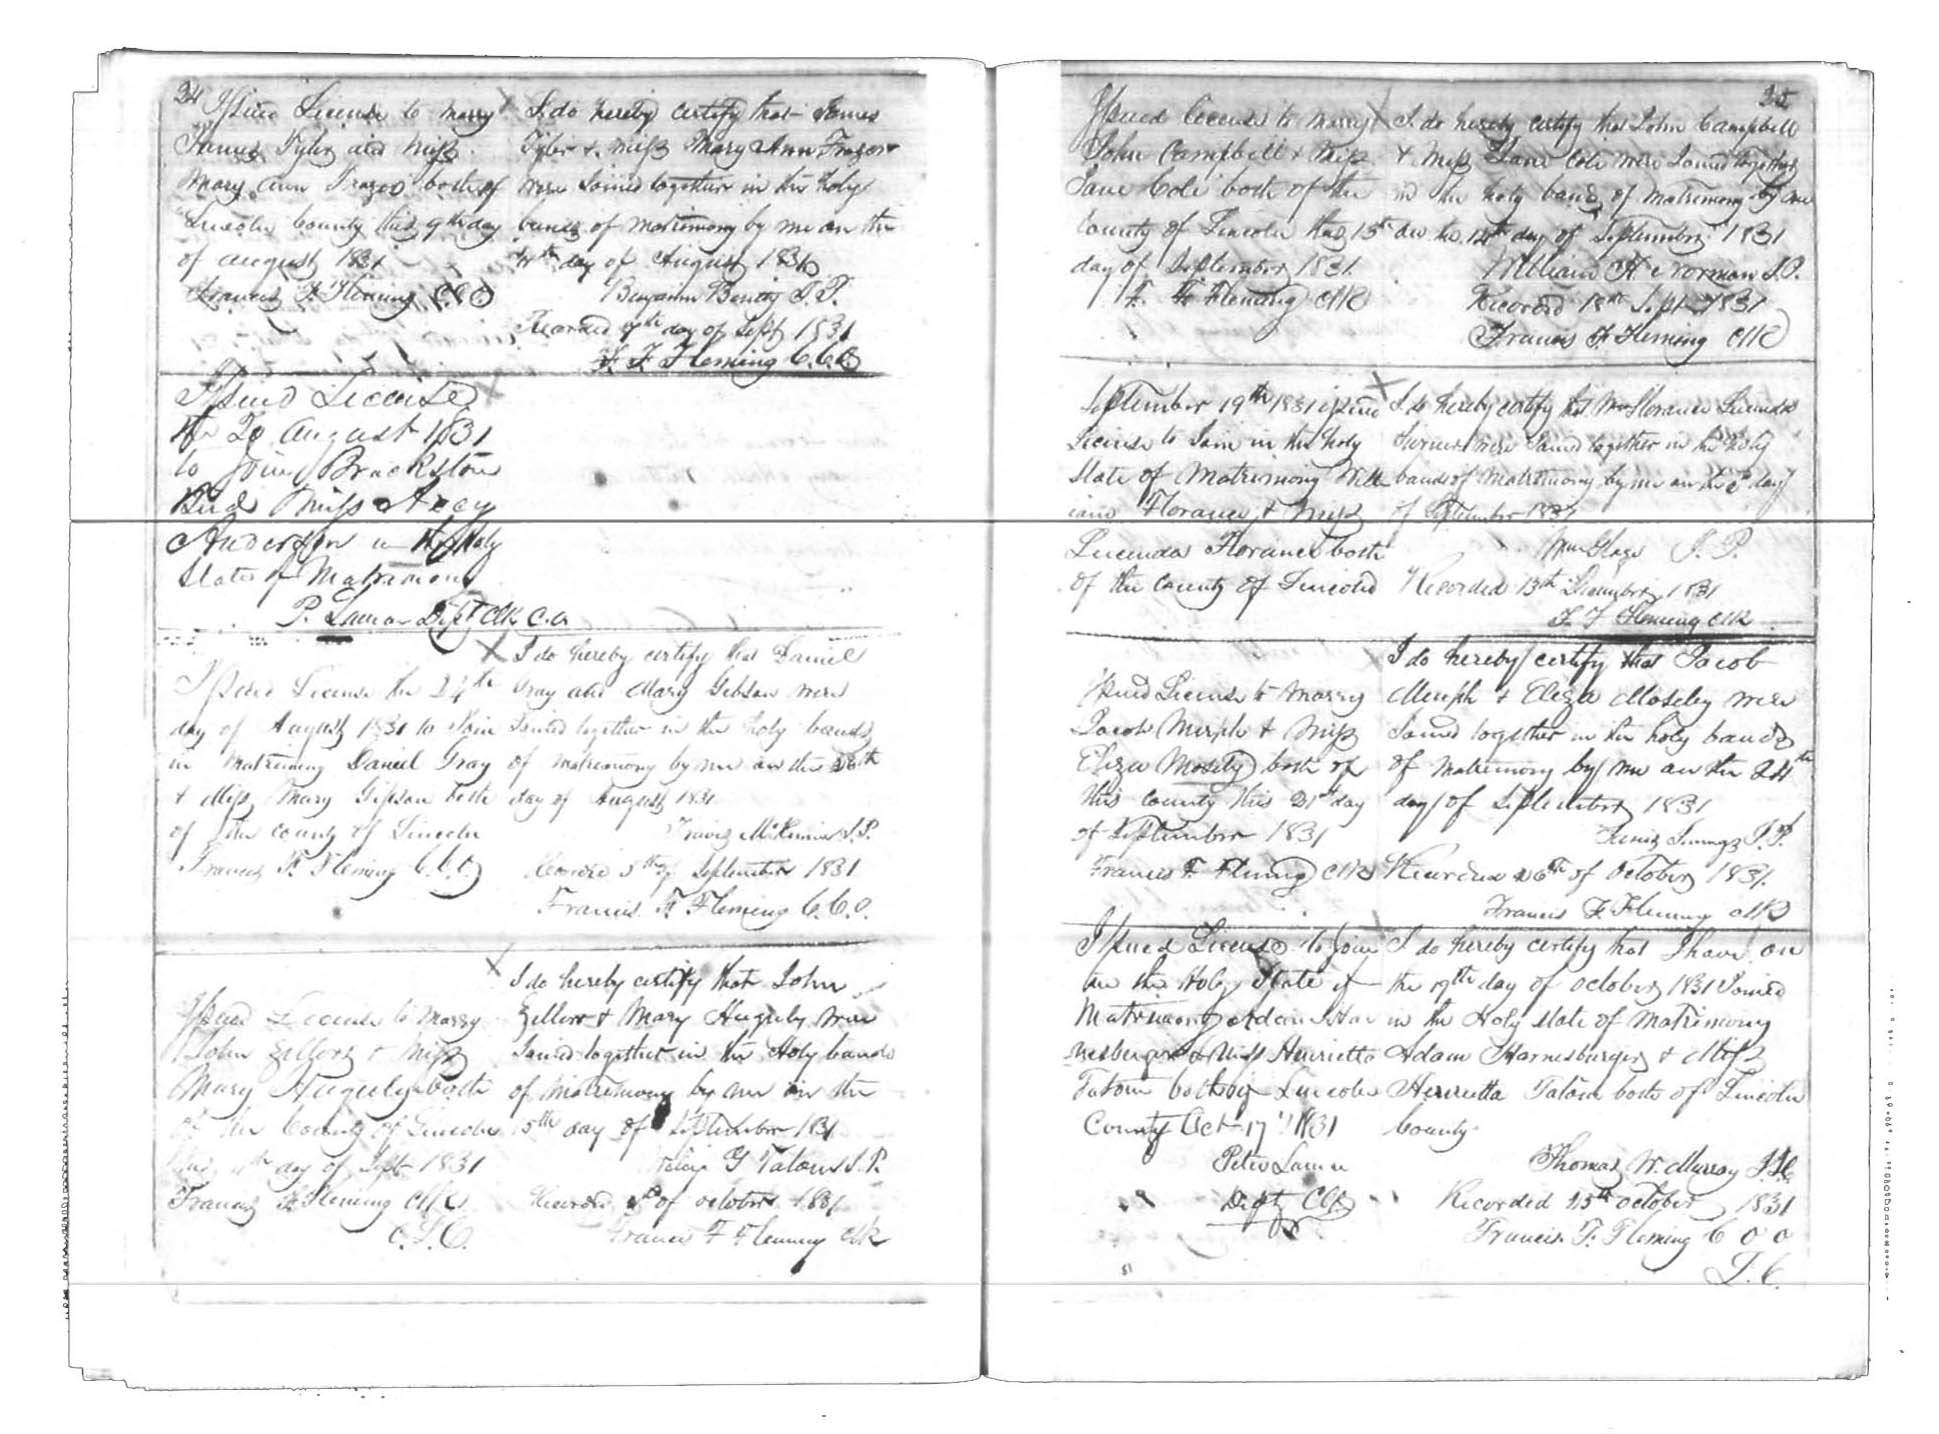 34
Issued License to marry
James Tyler and Miss
Mary Ann Frazor both of
Lincoln County this 9th day
of August 1831
Francis F. Fleming C.C.O
I do hereby certify that James
Tyler & Miss Mary Ann Frazor
were Joined together in the holy
bands of matrimony by me on the
day of August 1831
Benjamin J.P.
Recorded day of Sept 1831
F. F. Fleming C.C.O
Issued License
the 20 August 1831
to Join Brackston
and Miss
Anderson in the Holy
State of Matrimony
P. Lamar Dept Clk C.O.
Issued License the 24th
day of August 1831 to Join
in Matrimony Daniel Gray
& Miss Mary Gipson both
of the county of Lincoln
Francis F. Fleming C.C.O
I do hereby certify that Daniel
Gray and Mary Gibson were
Joined together in the holy bands
of matrimony by me on the
day of August 1831
Travis J.P.
Recorded 5th of September 1831
Francis F. Fleming C.C.O.
Issued License to marry
John Zellers & Miss
Mary both
of the County of Lincoln
this day of Sept 1831
Francis F. Fleming Clk
I do hereby certify that John
Zellers & Mary were
Joined together in the Holy bands
of Matrimony by me on the
15th day of September 1831
G Tatom J.P.
Recorded of October 1831
Francis F Fleming Clk
35
Issued license to marry
John Campbell & Miss
Jane Cole both of the
County of Lincoln this 13th
day of September 1831
F. F. Fleming Clk
I do hereby certify that John Campbell
& Miss Jane Cole were Joined together
in the holy bands of matrimony by me
on the 14th day of September 1831
William H. Norman J.P.
Recorded 18th Sept 1831
Francis F. Fleming Clk
September 19th 1831 issued
License to Join in the holy
State of Matrimony Will
iam Florance & Miss
Lucinda Florance both
of the County of Lincoln
I do hereby certify that Wm Florance Lucinda
were Joined together in the holy
bands of Matrimony by me on the day
of September 1831
Wm J.P.
Recorded 13th December 1831
F. F. Fleming Clk
Issued License to marry
Jacob & Miss
Eliza Mosely both of
this County this 21st day
of September 1831
Francis F. Fleming Clk
I do hereby certify that Jacob
& Eliza Moseley were
Joined together in the holy bands
of matrimony by me on the 24th
day of September 1831
J.P.
Recorded of October 1831
Francis F. Fleming Clk
Issued License to Join
in the Holy State of
Matrimony Adam Har
nesberger & Miss Henrietta
Tatom both of Lincoln
County Oct 17th 1831
Peter Lamar
Depty Clk
I do hereby certify that I have on
the day of October 1831 Joined
in the Holy State of Matrimony
Adam Harnesburger & Miss
Henrietta Tatom both of Lincoln
County
Thomas W. Murray
Recorded October 1831
Francis F. Fleming C C O
L. C.